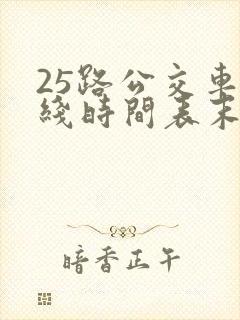 25路公交車
綫時間表末
暗香正午